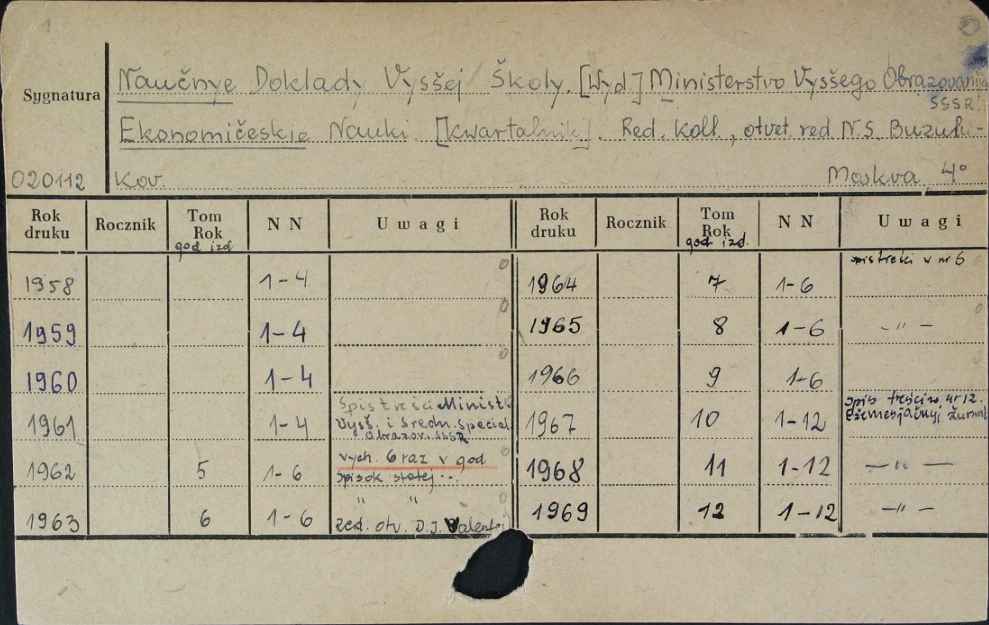 1
Naučnye Doklady Vysšej Školy. [Wyd] Ministerstvo Vysšego Obrazovanija
SSSR
Sygnatura
Ekonomičeskie Nauki. [Kwartalnik]. Red. Koll., otvet. red N.S. Buzulu-
020112 kov. Moskva 4°
Rok druku Rocznik Tom Rok god izd NN Uwagi Rok druku Rocznik Tom Rok god izd. NN Uwagi
1958 1-4 0 1964 7 1-6 spis treści w nr 6
1959 1-4 0 1965 8 1-6 -"-
1960 1-4 0 1966 9 1-6
1961 1-4 Spis treści Minist. Vysš. i Sredn. Special Obrazov. SSSR 1967 10 1-12 spis treści w nr 12. Ežemesjačnyj žurnal
1962 5 1-6 vych. 6 raz v god spisok statej... 0 1968 11 1-12 -"-
1963 6 1-6 " " red. otv. D.J. Valent 0 1969 12 1-12 -"-